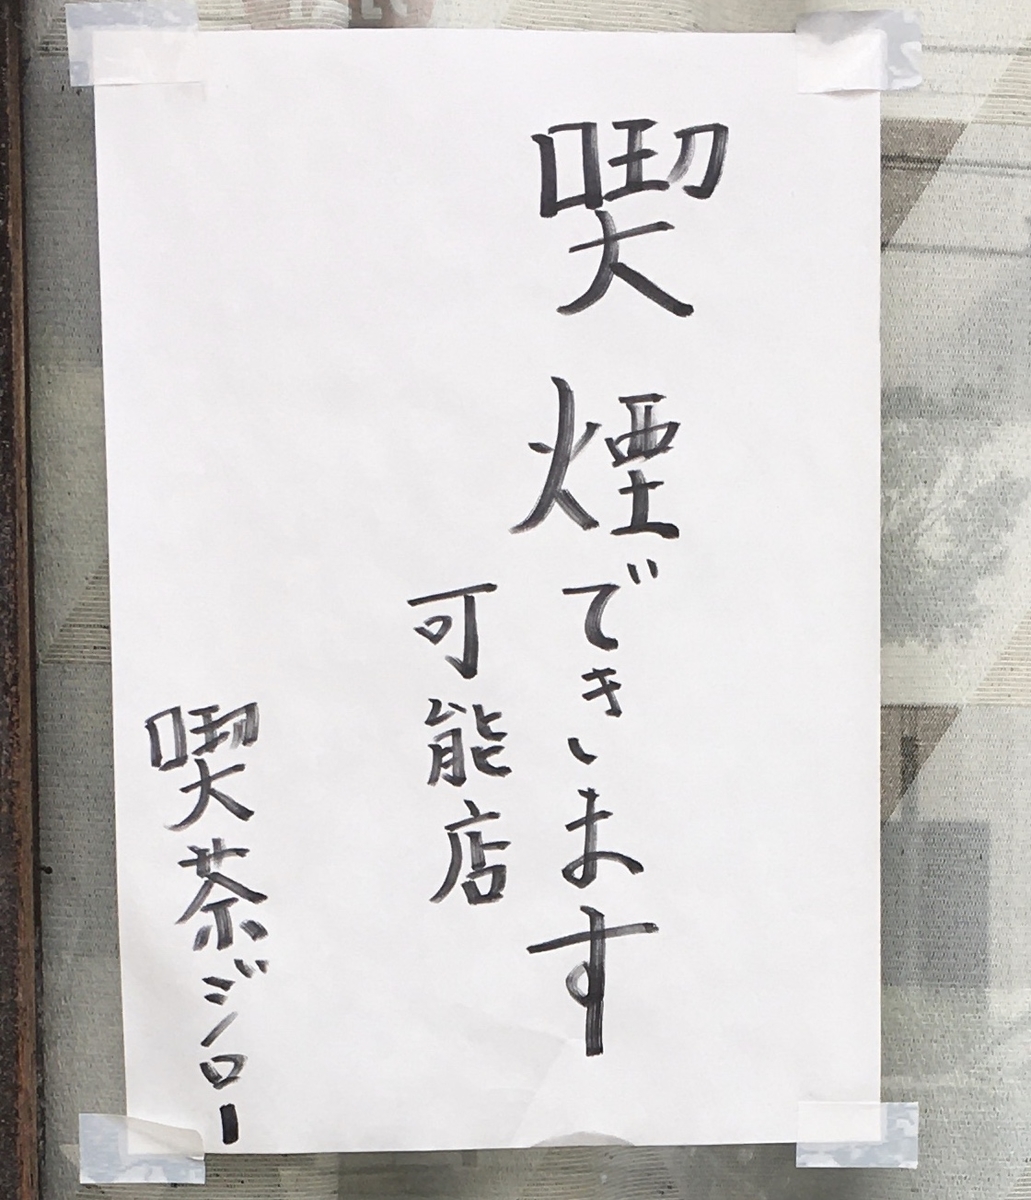 喫煙できます
可能店
喫茶ジロー